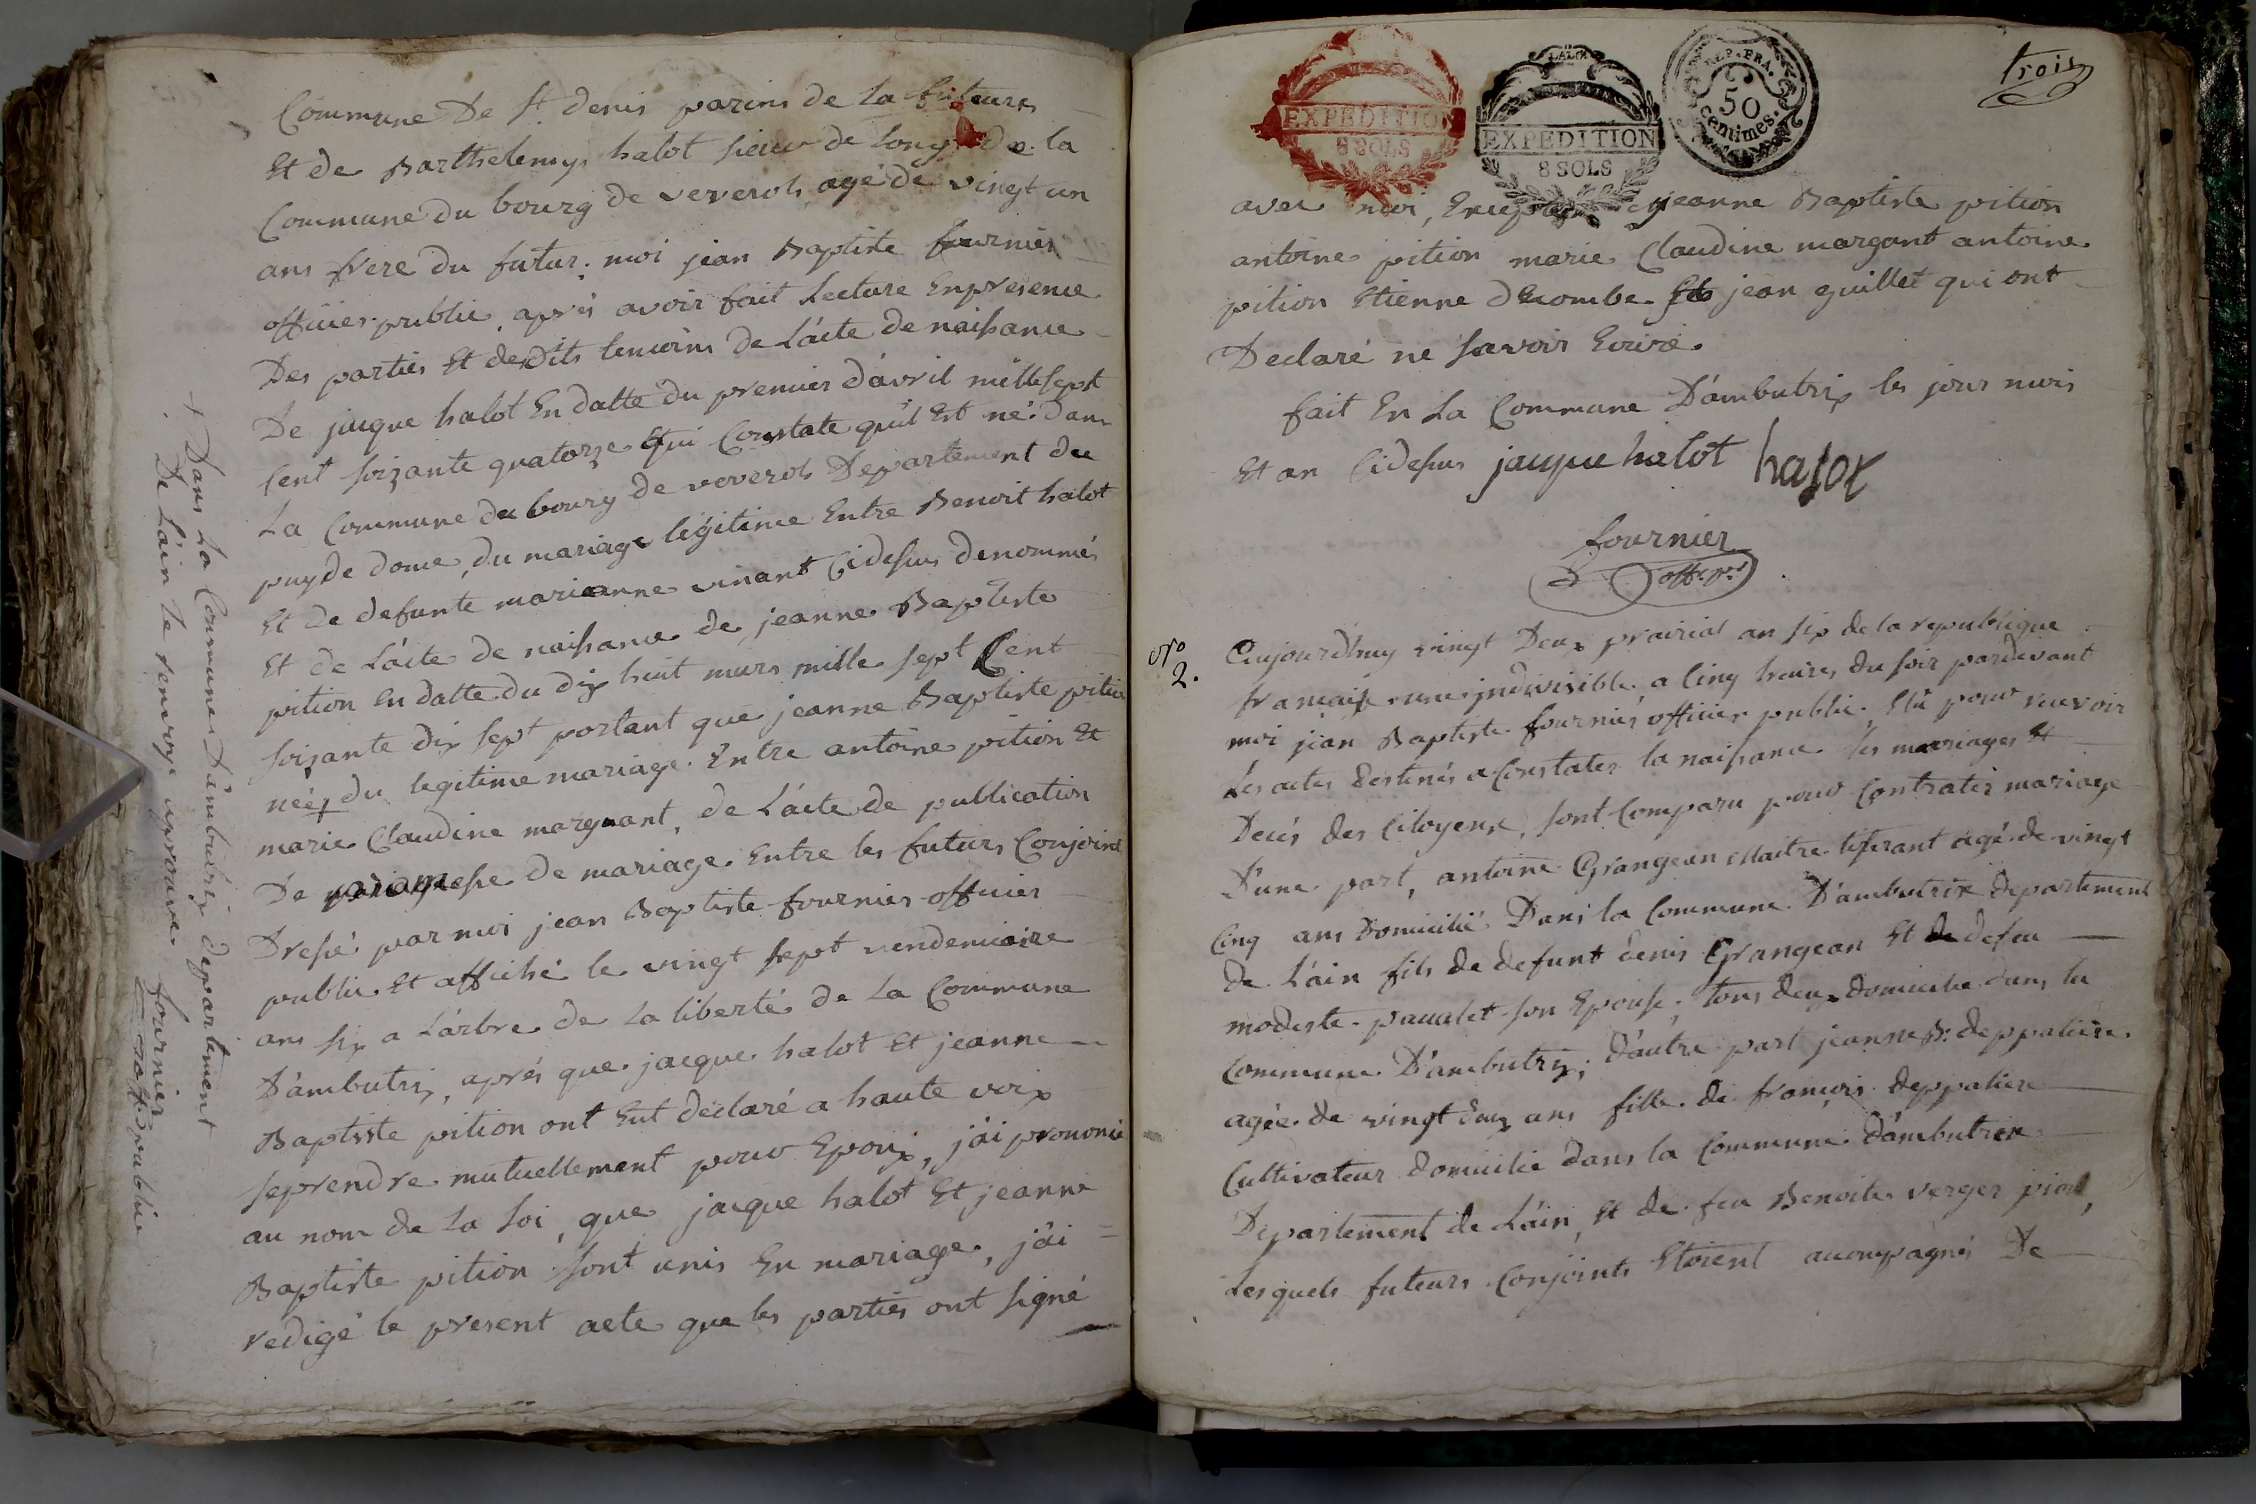 Commune De St. denis parins de la futeure
Et de Barthelemy halot sieur de long de la
Commune du bourg de veverols agé de vingt un
ans frere du futur; moi jean Baptiste fournier
officier public, aprés avoir fait Lecture En presence
Des parties Et desdits temoins de L'acte de naissance
De jacque halot En datte du premier d'avril mille sept
Cent soixante quatorze Qui Constate qu'il Est né dans
La Commune du bourg de veverols Departement du
puy de dome, du mariage légitime Entre Benoit halot
Et de defunte marianne vinant Cidessus denommés
Et de L'acte de naissance de jeanne Baptiste
pition En datte du dix huit mars mille sept Cent
soixante dix sept portant que jeanne Baptiste pition
née + du legitime mariage Entre antoine pition Et
marie Claudine margnant, de L'acte de publication
De promesse de mariage Entre les futurs Conjoints
Dressé par moi jean Baptiste fournier officier
public Et affiché le vingt sept vendemiaire
ans six a L'arbre de La liberté de La Commune
D'ambutrix, aprés que jacque halot Et jeanne
Baptiste pition ont Eut declaré a haute voix
se prendre mutuellement pour Epoux, j'ai prononcé
au nom de La Loi, que jacque halot Et jeanne
Baptiste pition sont unis En mariage, j'ai
redigé le present acte que les parties ont signé
+ Dans La Commune D'ambutrix departement
De L'ain le renvoy aprouvé fournier
off public
EXPEDITION
8 SOLS
LALOI
EXPEDITION
8 SOLS
REP. FRA.
50
Centimes.
trois
avec moi, Excepté jeanne Baptiste pition
antoine pition marie Claudine margant antoine
pition Etienne decombe Et jean guillet qui ont
Declaré ne savoir Ecrire.
fait En La Commune D'ambutrix les jour mois
Et an Cidessus jacque halot halot
fournier
off. p.
No
2.
Aujourdhuy vingt Deux prairial an six de la republique
francaise une indivisible a Cinq heures du soir pardevant
moi jean Baptiste fournier officier public Elu pour recevoir
Les actes destinés a Constater la naissance les mariages Et
Decés des Citoyens, sont Comparu pour Contracter mariage
D'une part, antoine Grangean Maitre tisserant agé de vingt
Cinq ans Domicilié Dans la Commune D'ambutrix departement
de L'ain fils de defunt denis Grangean Et de defeu
modeste paualet son Epouse, tous deux domicilié dans la
Commune D'ambutrix; D'autre part jeanne B. deppaliere
agée de vingt deux ans fille de francois deppaliere
Cultivateur domicilié dans la Commune d'ambutrix
Departement de L'ain, Et de feu Benoite verger piod,
Lesquels futeurs Conjoints Etoient acompagnés De